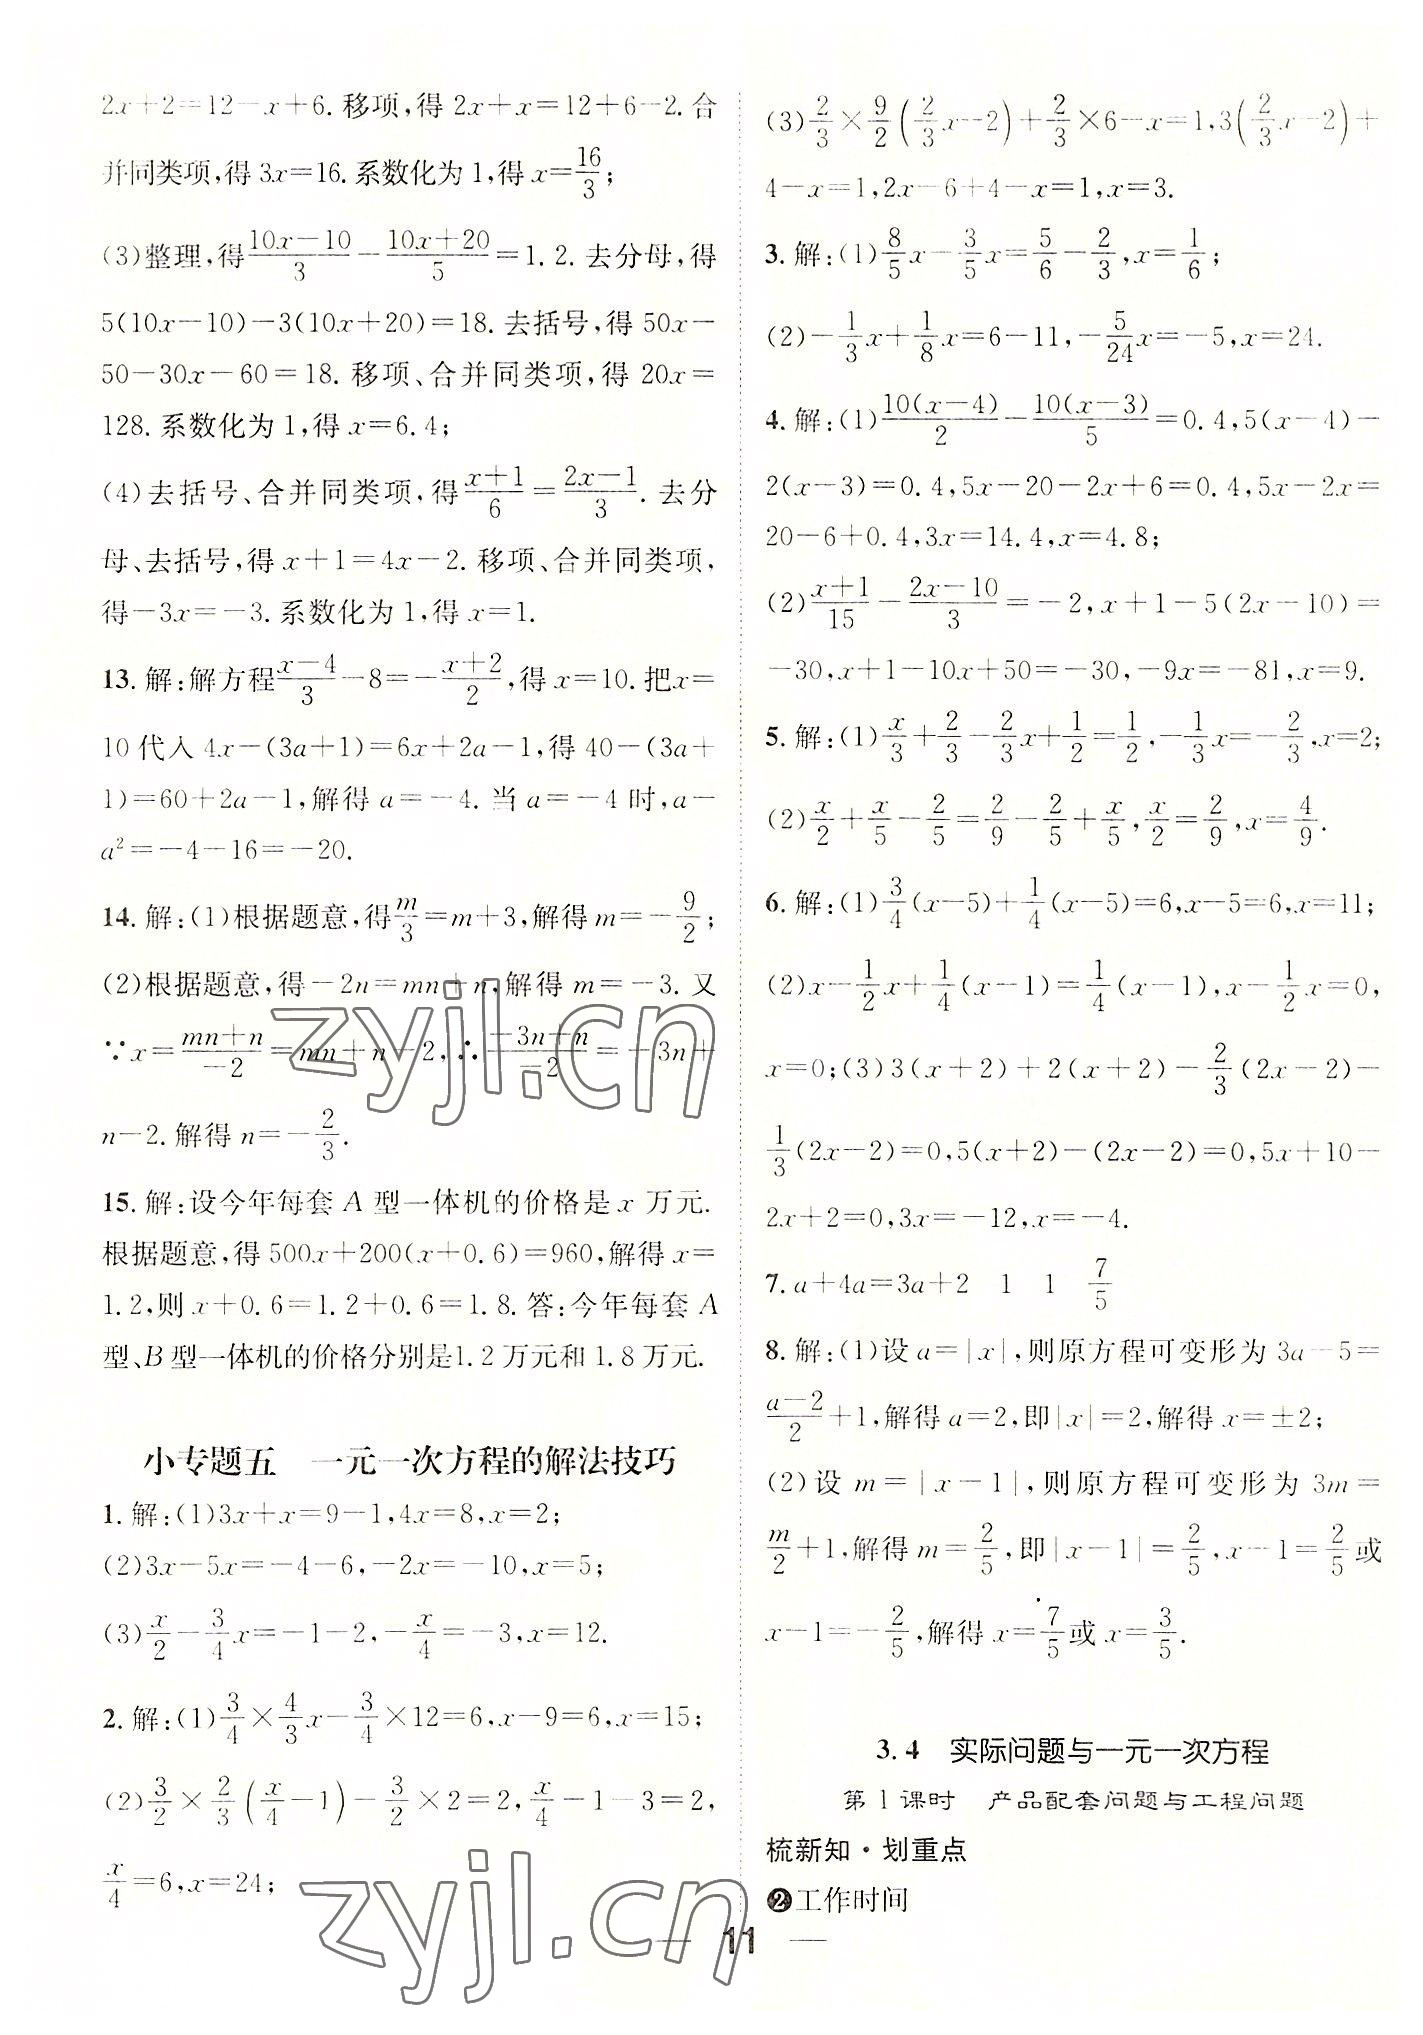 2x+2=12-x+6. 移项,得 2x+x=12+6-2. 合
并同类项,得 3x=16. 系数化为 1,得 x=16/3;
(3)整理,得(10x-10)/3-(10x+20)/5=1.2. 去分母,得
5(10x-10)-3(10x+20)=18. 去括号,得 50x-
50-30x-60=18. 移项、合并同类项,得 20x=
128. 系数化为 1,得 x=6.4;
(4)去括号、合并同类项,得(x+1)/6=(2x-1)/3. 去分
母、去括号,得 x+1=4x-2. 移项、合并同类项,
得-3x=-3. 系数化为 1,得 x=1.
13. 解:解方程(x-4)/3-8=-(x+2)/2,得 x=10. 把x=
10 代入 4x-(3a+1)=6x+2a-1,得 40-(3a+
1)=60+2a-1,解得 a=-4. 当 a=-4 时,a-
a²=-4-16=-20.
14. 解:(1)根据题意,得m/3=m+3,解得 m=-9/2;
(2)根据题意,得-2n=mn+n,解得 m=-3. 又
∵x=(mn+n)/-2=mn+n-2,∴(-3n+n)/-2=-3n+
n-2. 解得 n=-2/3.
15. 解:设今年每套 A 型一体机的价格是 x 万元.
根据题意,得 500x+200(x+0.6)=960,解得 x=
1.2,则 x+0.6=1.2+0.6=1.8. 答:今年每套 A
型、B 型一体机的价格分别是1.2 万元和 1.8 万元.
小专题五 一元一次方程的解法技巧
1. 解:(1)3x+x=9-1,4x=8,x=2;
(2)3x-5x=-4-6,-2x=-10,x=5;
(3)x/2-3/4x=-1-2,-x/4=-3,x=12.
2. 解:(1)3/4×4/3x-3/4×12=6,x-9=6,x=15;
(2)3/2×2/3(x/4-1)-3/2×2=2,x/4-1-3=2,
x/4=6,x=24;
(3)2/3×9/2(2/3x-2)+2/3×6-x=1,3(2/3x-2)+
4-x=1,2x-6+4-x=1,x=3.
3. 解:(1)8/5x-3/5x=5/6-2/3,x=1/6;
(2)-1/3x+1/8x=6-11,-5/24x=-5,x=24.
4. 解:(1)10(x-4)/2-10(x-3)/5=0.4,5(x-4)-
2(x-3)=0.4,5x-20-2x+6=0.4,5x-2x=
20-6+0.4,3x=14.4,x=4.8;
(2)(x+1)/15-(2x-10)/3=-2,x+1-5(2x-10)=
-30,x+1-10x+50=-30,-9x=-81,x=9.
5. 解:(1)x/3+2/3-2/3x+1/2=1/2,-1/3x=-2/3,x=2;
(2)x/2+x/5-2/5=2/9-2/5+x/5,x/2=2/9,x=4/9.
6. 解:(1)3/4(x-5)+1/4(x-5)=6,x-5=6,x=11;
(2)x-1/2x+1/4(x-1)=1/4(x-1),x-1/2x=0,
x=0;(3)3(x+2)+2(x+2)-2/3(2x-2)-
1/3(2x-2)=0,5(x+2)-(2x-2)=0,5x+10-
2x+2=0,3x=-12,x=-4.
7. a+4a=3a+2 1 1 7/5
8. 解:(1)设 a=|x|,则原方程可变形为 3a-5=
(a-2)/2+1,解得 a=2,即|x|=2,解得 x=±2;
(2)设 m=|x-1|,则原方程可变形为 3m=
m/2+1,解得 m=2/5,即|x-1|=2/5,x-1=2/5或
x-1=-2/5,解得 x=7/5或 x=3/5.
3.4 实际问题与一元一次方程
第 1 课时 产品配套问题与工程问题
梳新知·划重点
❷工作时间
— 11 —
zyjl.cn
zyjl.cn